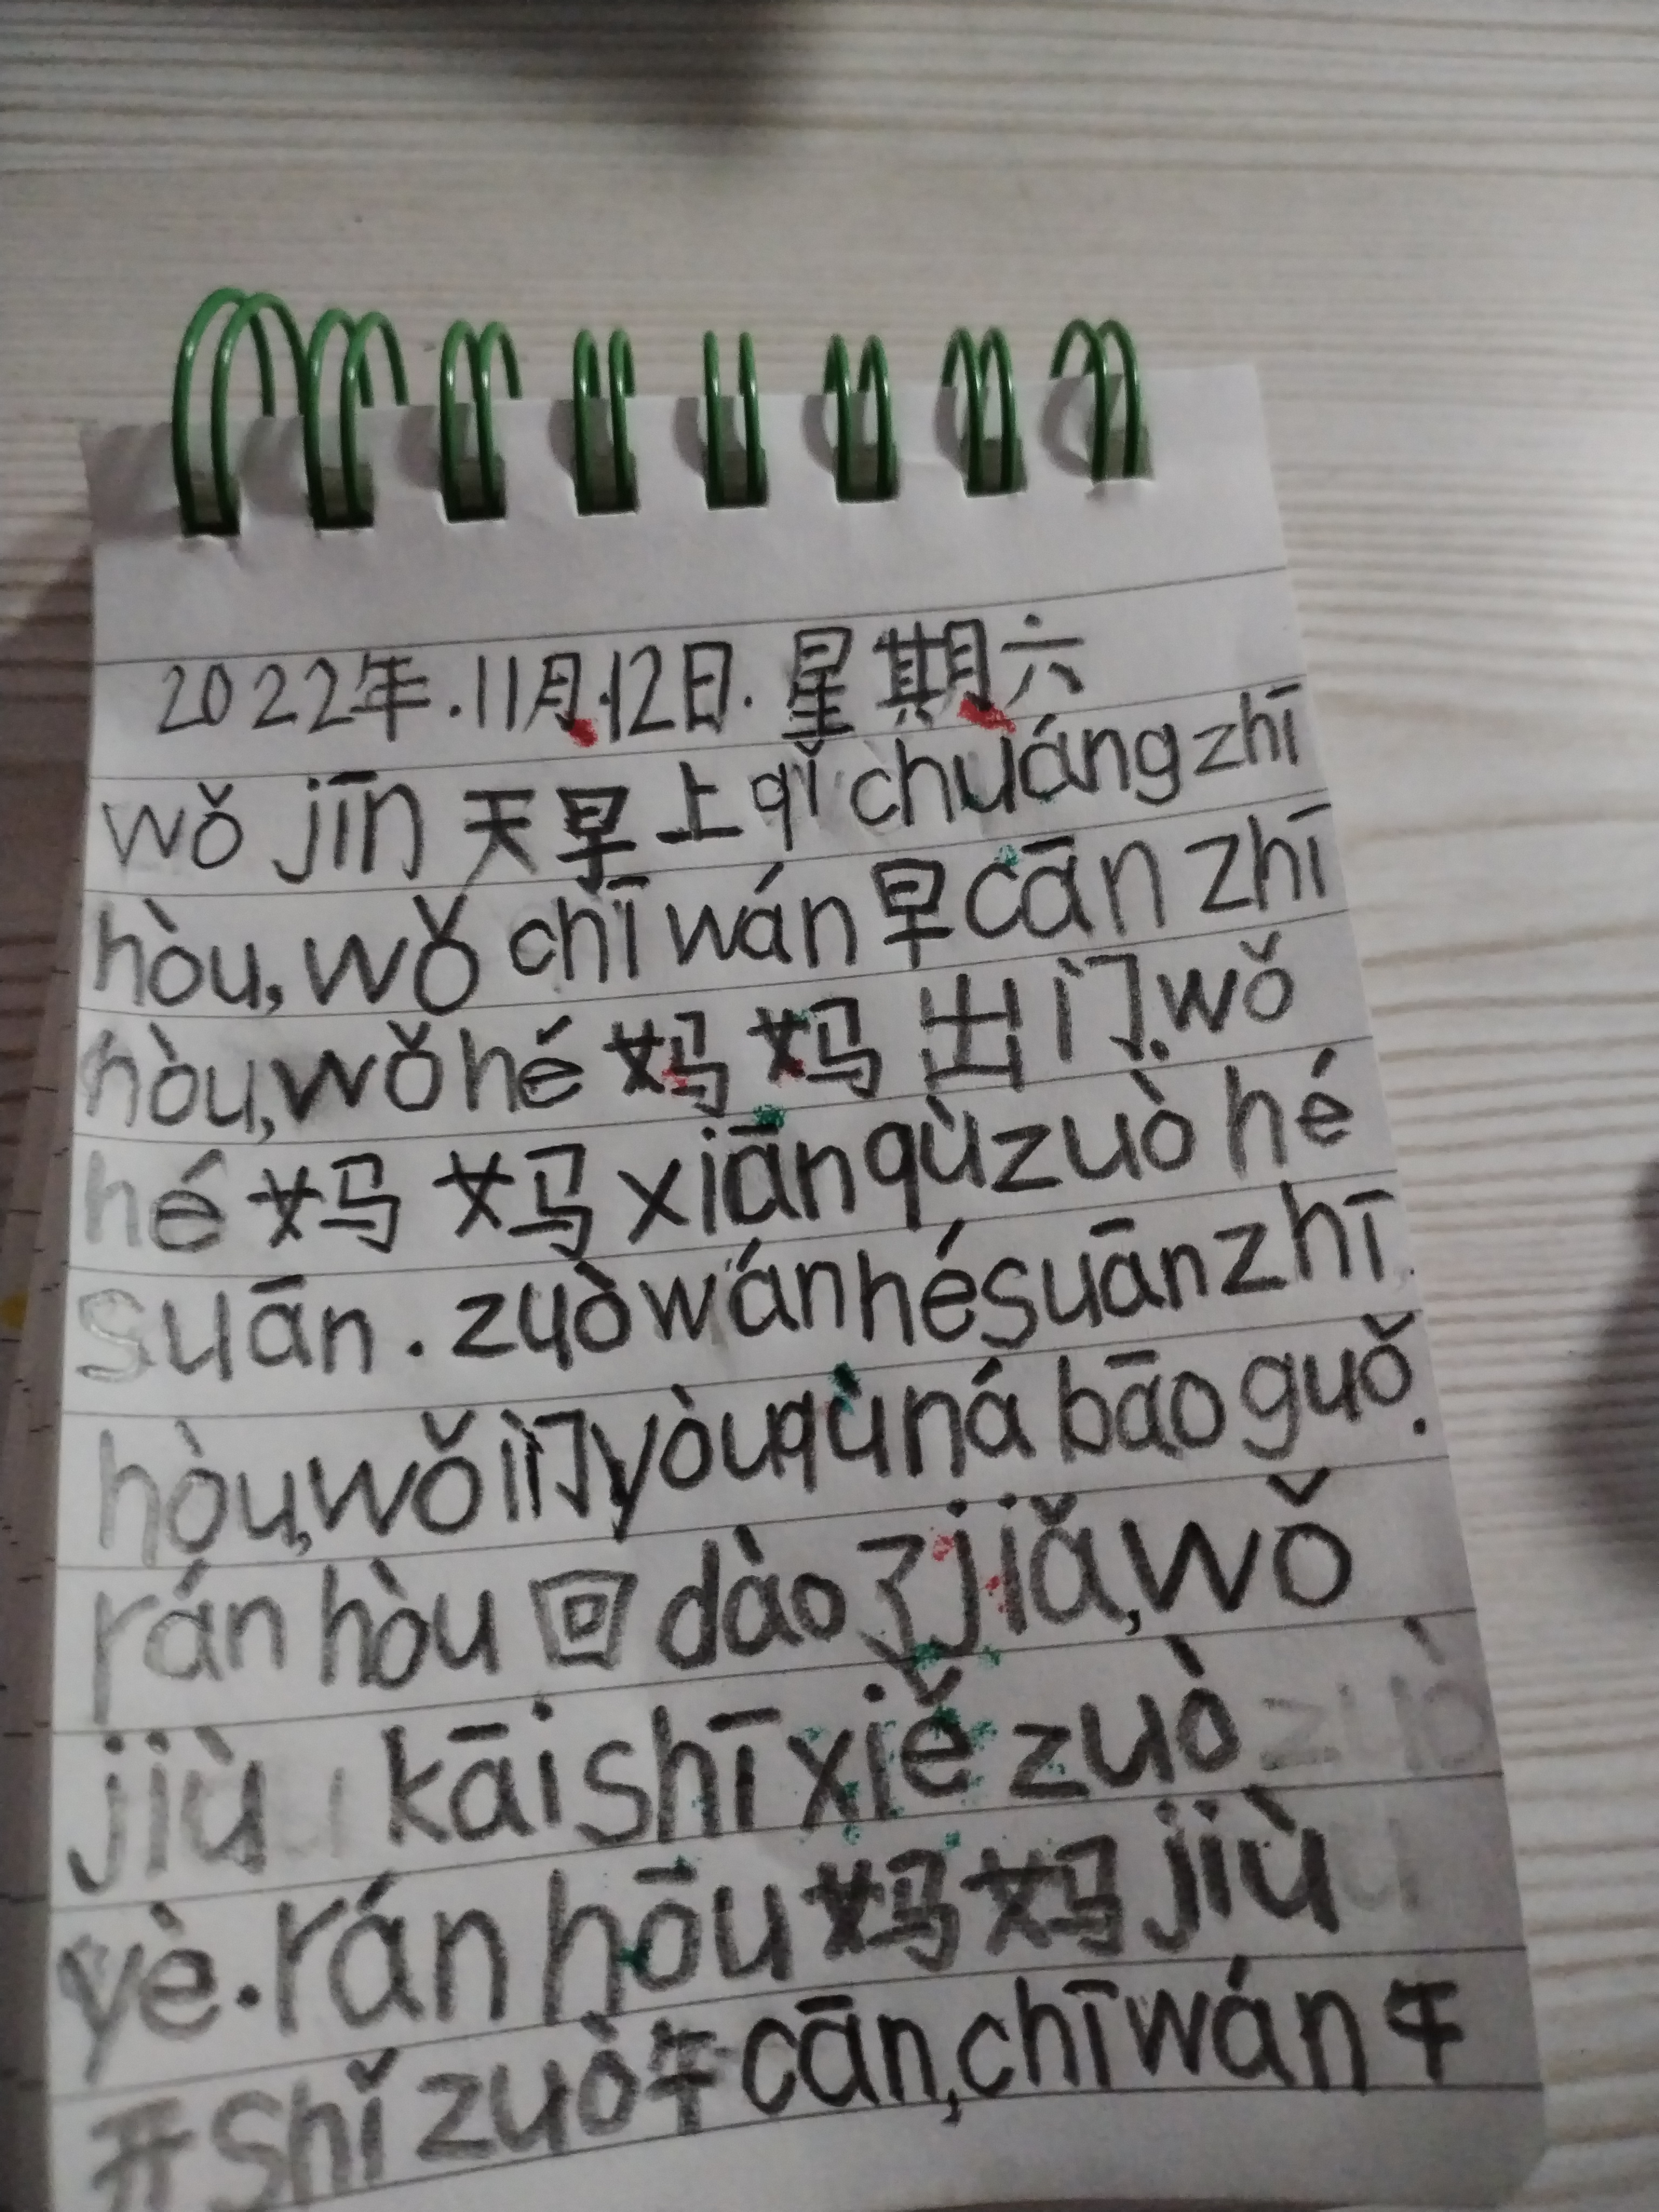 2022年.11月.12日.星期六
wǒ jīn 天早上qǐ chuáng zhī
hòu, wǒ chī wán 早 cān zhī
hòu, wǒ hé 妈妈出门.wǒ
hé 妈妈 xiān qù zuò hé
suān . zuò wán hé suān zhī
hòu, wǒ 们 yòu qù ná bāo guǒ.
rán hòu 回 dào 了 jiǎ, wǒ
jiù kāi shī xiě zuò
yè. rán hōu 妈妈 jiù
开 shǐ zuò 午 cān, chī wán 午